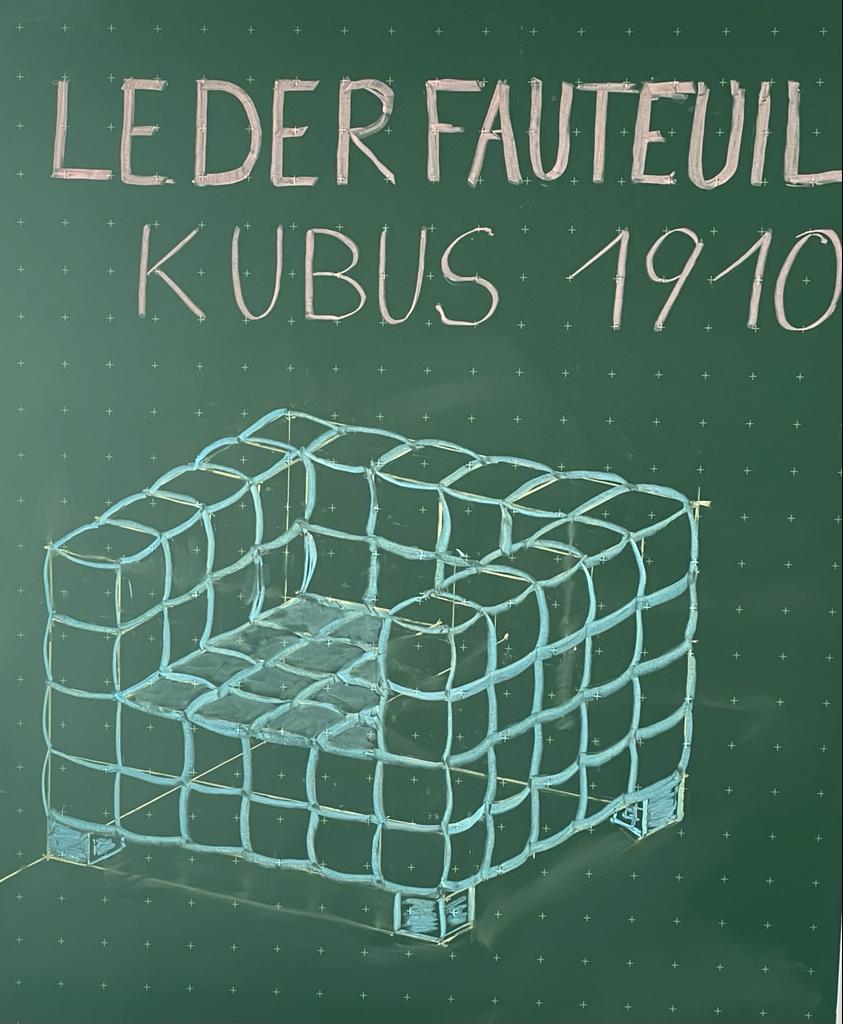 LEDERFAUTEUIL
KUBUS 1910